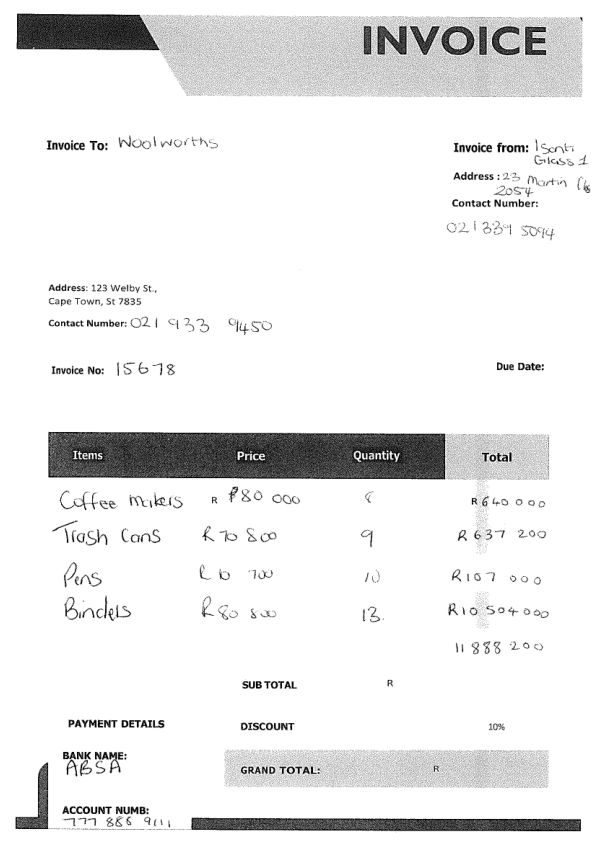 INVOICE
Invoice To: Woolworths
Invoice from: Isanti
Glass 1
Address : 23 Martin
2054
Contact Number:
021 339 5094
Address: 123 Welby St.,
Cape Town, St 7835
Contact Number: 021 933 9450
Invoice No: 15678
Due Date:
Items Price Quantity Total
Coffee makers R R80 000 8 R640 000
Trash Cans R 70 800 9 R 637 200
Pens R 10 700 10 R107 000
Binders R 80 800 13. R10 504 000
11 888 200
SUB TOTAL R
PAYMENT DETAILS
DISCOUNT 10%
BANK NAME:
ABSA
GRAND TOTAL: R
ACCOUNT NUMB:
777 886 9111